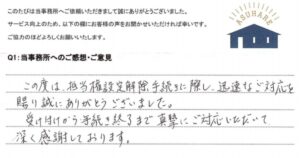 このたびは当事務所へご依頼いただきまして誠にありがとうございました。
サービス向上のため、以下の欄にお客様の声をお聞かせいただければ幸いです。
ご協力のほどよろしくお願いいたします。
ASUHARE
Q1:当事務所へのご感想・ご意見
この度は、抵当権設定解除手続きに際し、迅速なご対応を
賜り誠にありがとうございました。
受け付けから手続き終了まで真摯にご対応いただいて
深く感謝しております。